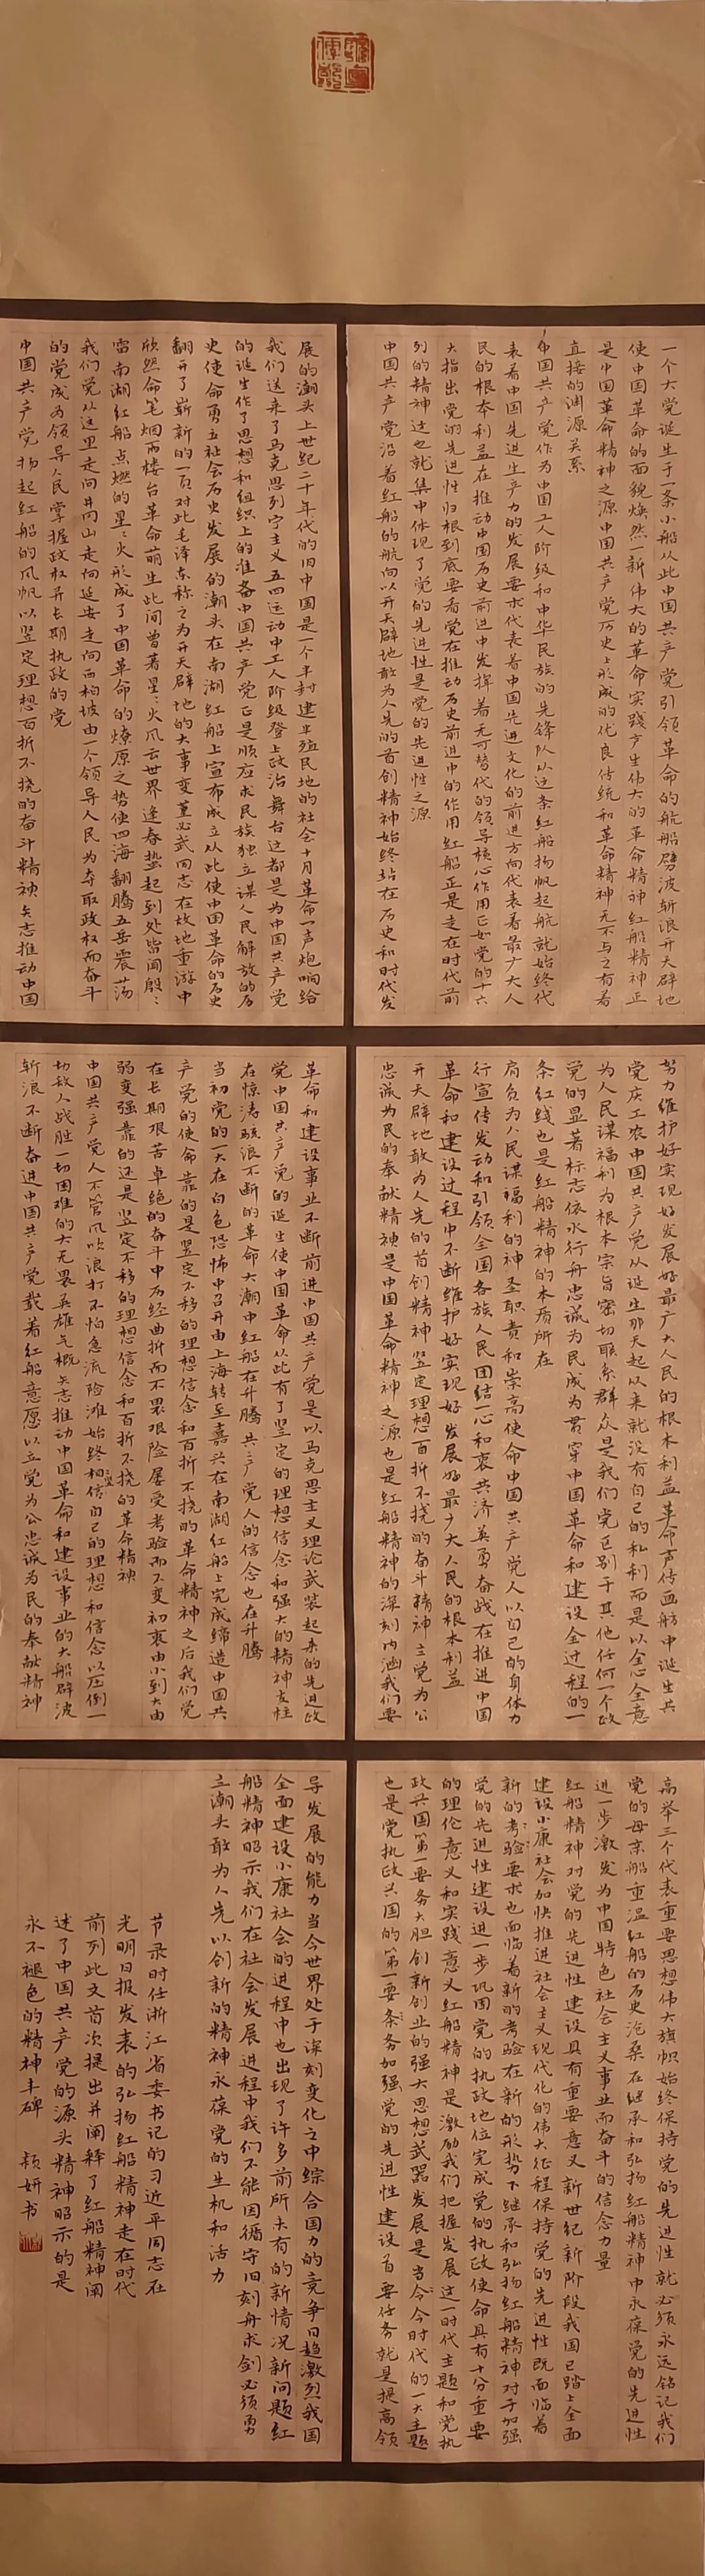 一个大党诞生于一条小船从此中国共产党引领革命的航船劈波斩浪开天辟地
使中国革命的面貌焕然一新伟大的革命实践产生伟大的革命精神红船精神正
是中国革命精神之源中国共产党历史上形成的优良传统和革命精神无不与之有着
直接的渊源关系
中国共产党作为中国工人阶级和中华民族的先锋队从这条红船扬帆起航就始终代
表着中国先进生产力的发展要求代表着中国先进文化的前进方向代表着最广大人
民的根本利益在推动中国历史前进中发挥着无可替代的领导核心作用正如党的十六
大指出党的先进性归根到底要看党在推动历史前进中的作用红船正是走在时代前
列的精神这也就集中体现了党的先进性是党的先进性之源
中国共产党沿着红船的航向以开天辟地敢为人先的首创精神始终站在历史和时代发
展的潮头上世纪二十年代的旧中国是一个半封建半殖民地的社会十月革命一声炮响给
我们送来了马克思列宁主义五四运动中工人阶级登上政治舞台这都是为中国共产党
的诞生作了思想和组织上的准备中国共产党正是顺应求民族独立谋人民解放的历
史使命勇立社会历史发展的潮头在南湖红船上宣布成立从此使中国革命的历史
翻开了崭新的一页对此毛泽东称之为开天辟地的大事变董必武同志在故地重游中
欣然命笔烟雨楼台革命萌生此间曾著星:火风云世界逢春蛰起到处皆闻殷:
雷南湖红船点燃的星:火形成了中国革命的燎原之势使四海翻腾五岳震荡
我们党从这里走向井冈山走向延安走向西柏坡由一个领导人民为夺取政权而奋斗
的党成为领导人民掌握政权并长期执政的党
中国共产党扬起红船的风帆以坚定理想百折不挠的奋斗精神矢志推动中国
努力维护好实现好发展好最广大人民的根本利益革命声传画舫中诞生共
党庆工农中国共产党从诞生那天起以来就没有自己的私利而是以全心全意
为人民谋福利为根本宗旨密切联系群众是我们党区别于其他任何一个政
党的显著标志依水行舟忠诚为民成为贯穿中国革命和建设全过程的一
条红线也是红船精神的本质所在
肩负为人民谋福利的神圣职责和崇高使命中国共产党人以自己的身体力
行宣传发动和引领全国各族人民团结一心和衷共济英勇奋战在推进中国
革命和建设过程中不断维护好实现好发展好最广大人民的根本利益
开天辟地敢为人先的首创精神坚定理想百折不挠的奋斗精神立党为公
忠诚为民的奉献精神是中国革命精神之源也是红船精神的深刻内涵我们要
革命和建设事业不断前进中国共产党是以马克思主义理论武装起来的先进政
党中国共产党的诞生使中国革命从此有了坚定的理想信念和强大的精神支柱
在惊涛骇浪不断的革命大潮中红船在升腾共产党人的信念也在升腾
当初党的一大在白色恐怖中召开由上海转至嘉兴在南湖红船上完成缔造中国共
产党的使命靠的是坚定不移的理想信念和百折不挠的革命精神之后我们党
在长期艰苦卓绝的奋斗中历经曲折而不畏艰险屡受考验而不变初衷由小到大由
弱变强靠的还是坚定不移的理想信念和百折不挠的革命精神
中国共产党人不管风吹浪打不怕急流险滩始终坚信自己的理想和信念以压倒一
切敌人战胜一切困难的大无畏英雄气概矢志推动中国革命和建设事业的大船劈波
斩浪不断奋进中国共产党载着红船意愿以立党为公忠诚为民的奉献精神
高举三个代表重要思想伟大旗帜始终保持党的先进性就必须永远铭记我们
党的母亲船重温红船的历史沧桑在继承和弘扬红船精神中永葆党的先进性
进一步激发为中国特色社会主义事业而奋斗的信念力量
红船精神对党的先进性建设具有重要意义新世纪新阶段我国已踏上全面
建设小康社会加快推进社会主义现代化的伟大征程保持党的先进性既面临着
新的考验要求也面临着新的考验在新的形势下继承和弘扬红船精神对于加强
党的先进性建设进一步巩固党的执政地位完成党的执政使命具有十分重要
的理伦意义和实践意义红船精神是激励我们把握发展这一时代主题和党执
政兴国第一要务大胆创新创业的强大思想武器发展是当今今时代的一大主题
也是党执政兴国的第一要条务加强党的先进性建设首要任务就是提高领
导发展的能力当今世界处于深刻变化之中综合国力的竞争日趋激烈我国
全面建设小康社会的进程中也出现了许多前所未有的新情况新问题红
船精神昭示我们在社会发展进程中我们不能因循守旧刻舟求剑必须勇
立潮头敢为人先以创新的精神永葆党的生机和活力
节录时任浙江省委书记的习近平同志在
光明日报发表的弘扬红船精神走在时代
前列此文首次提出并阐释了红船精神阐
述了中国共产党的源头精神昭示的是
永不褪色的精神丰碑 颖妍书